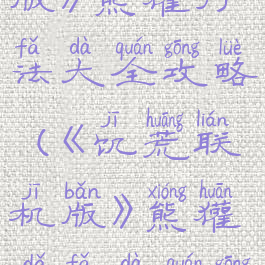 版》熊獾打
fǎ dà quán gōng lüè
法大全攻略
jī huāng lián
（《饥荒联
jī bǎn xióng huān
机版》熊獾
dǎ fǎ dà quán gōng